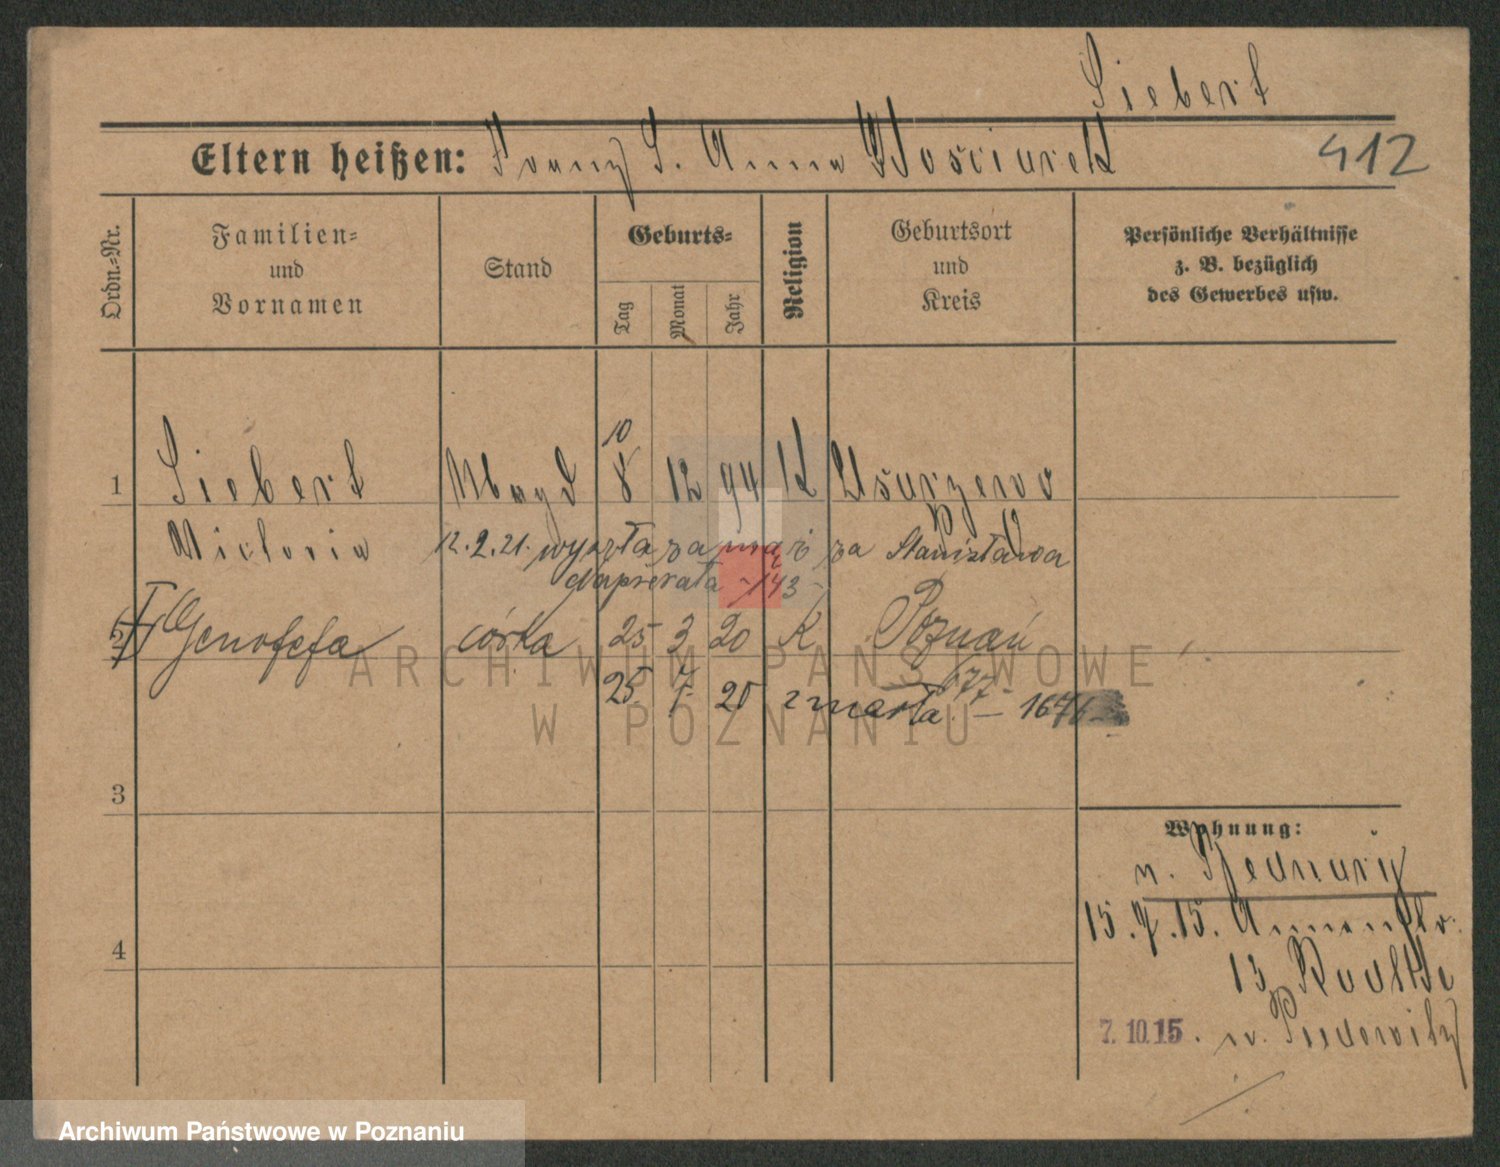 Siebert
Eltern heißen: Franz S. Anna Wosciurek
412
Ordn.-Nr.
Familien- und Vornamen
Stand
Geburts-
Tag
Monat
Jahr
Religion
Geburtsort und Kreis
Persönliche Verhältnisse z. B. bezüglich des Gewerbes usw.
10
1 Siebert Magd 8 12 94 K
Victoria 12.2.21. wyszła za mąż za Stanisława
143
2 Genofefa córka 25 3 20 K Poznań
25 7 20 zmarła 1676
3
4
Wohnung:
n.
15.7.15.
13
7.10.15. n.
ARCHIWUM PAŃSTWOWE
W POZNANIU
Archiwum Państwowe w Poznaniu